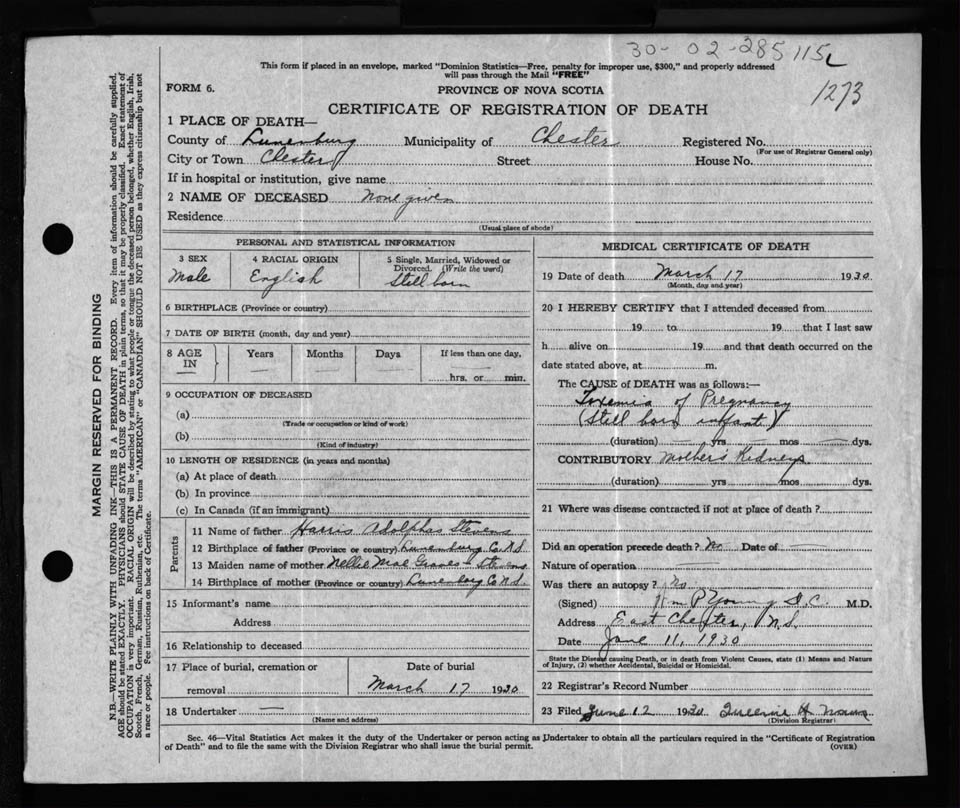 30-02-285 115
1273
This form if placed in an envelope, marked "Dominion Statistics—Free, penalty for improper use, $300," and properly addressed
will pass through the Mail "FREE"
FORM 6.
PROVINCE OF NOVA SCOTIA
CERTIFICATE OF REGISTRATION OF DEATH
1 PLACE OF DEATH—
County of Lunenburg Municipality of Chester Registered No.
(For use of Registrar General only)
City or Town Chester Street House No.
If in hospital or institution, give name
2 NAME OF DECEASED None given
Residence
(Usual place of abode)
PERSONAL AND STATISTICAL INFORMATION
3 SEX 4 RACIAL ORIGIN 5 Single, Married, Widowed or
Divorced. (Write the word)
Male English Still born
6 BIRTHPLACE (Province or country)
7 DATE OF BIRTH (month, day and year)
8 AGE IN Years Months Days If less than one day,
hrs. or min.
9 OCCUPATION OF DECEASED
(a)
(Trade or occupation or kind of work)
(b)
(Kind of industry)
10 LENGTH OF RESIDENCE (in years and months)
(a) At place of death
(b) In province
(c) In Canada (if an immigrant)
Parents
11 Name of father Harris Adolphas Stevens
12 Birthplace of father (Province or country) Lunenburg Co N.S.
13 Maiden name of mother Nellie Mae Graves - Stevens
14 Birthplace of mother (Province or country) Lunenburg Co N.S.
15 Informant's name
Address
16 Relationship to deceased
17 Place of burial, cremation or
removal
Date of burial
March 17 1930
18 Undertaker —
(Name and address)
MEDICAL CERTIFICATE OF DEATH
19 Date of death March 17 1930
(Month, day and year)
20 I HEREBY CERTIFY that I attended deceased from
19 to 19 that I last saw
h alive on 19 and that death occurred on the
date stated above, at m.
The CAUSE of DEATH was as follows:—
Toxemia of Pregnancy
(Still born infant)
(duration) — yrs — mos — dys.
CONTRIBUTORY Mother's Kidneys
(duration) yrs mos dys.
21 Where was disease contracted if not at place of death?
Did an operation precede death? No Date of
Nature of operation
Was there an autopsy? No
(Signed) P Young M.D.
Address East Chester, N.S.
Date June 11, 1930
State the Disease causing Death, or in death from Violent Causes, state (1) Means and Nature
of Injury, (2) whether Accidental, Suicidal or Homicidal.
22 Registrar's Record Number
23 Filed June 12 1930 H
(Division Registrar)
Sec. 46—Vital Statistics Act makes it the duty of the Undertaker or person acting as Undertaker to obtain all the particulars required in the "Certificate of Registration
of Death" and to file the same with the Division Registrar who shall issue the burial permit.
(OVER)
MARGIN RESERVED FOR BINDING
N.B.—WRITE PLAINLY WITH UNFADING INK—THIS IS A PERMANENT RECORD. Every item of information should be carefully supplied.
AGE should be stated EXACTLY. PHYSICIANS should STATE CAUSE OF DEATH in plain terms, so that it may be properly classified. Exact statement of
OCCUPATION is very important. RACIAL ORIGIN will be described by stating to what people or tongue the deceased person belonged, whether English, Irish,
Scotch, French, German, Russian, Ruthenian, etc. The terms "AMERICAN" or "CANADIAN" SHOULD NOT BE USED as they express citizenship but not
a race or people. Fee instructions on back of Certificate.